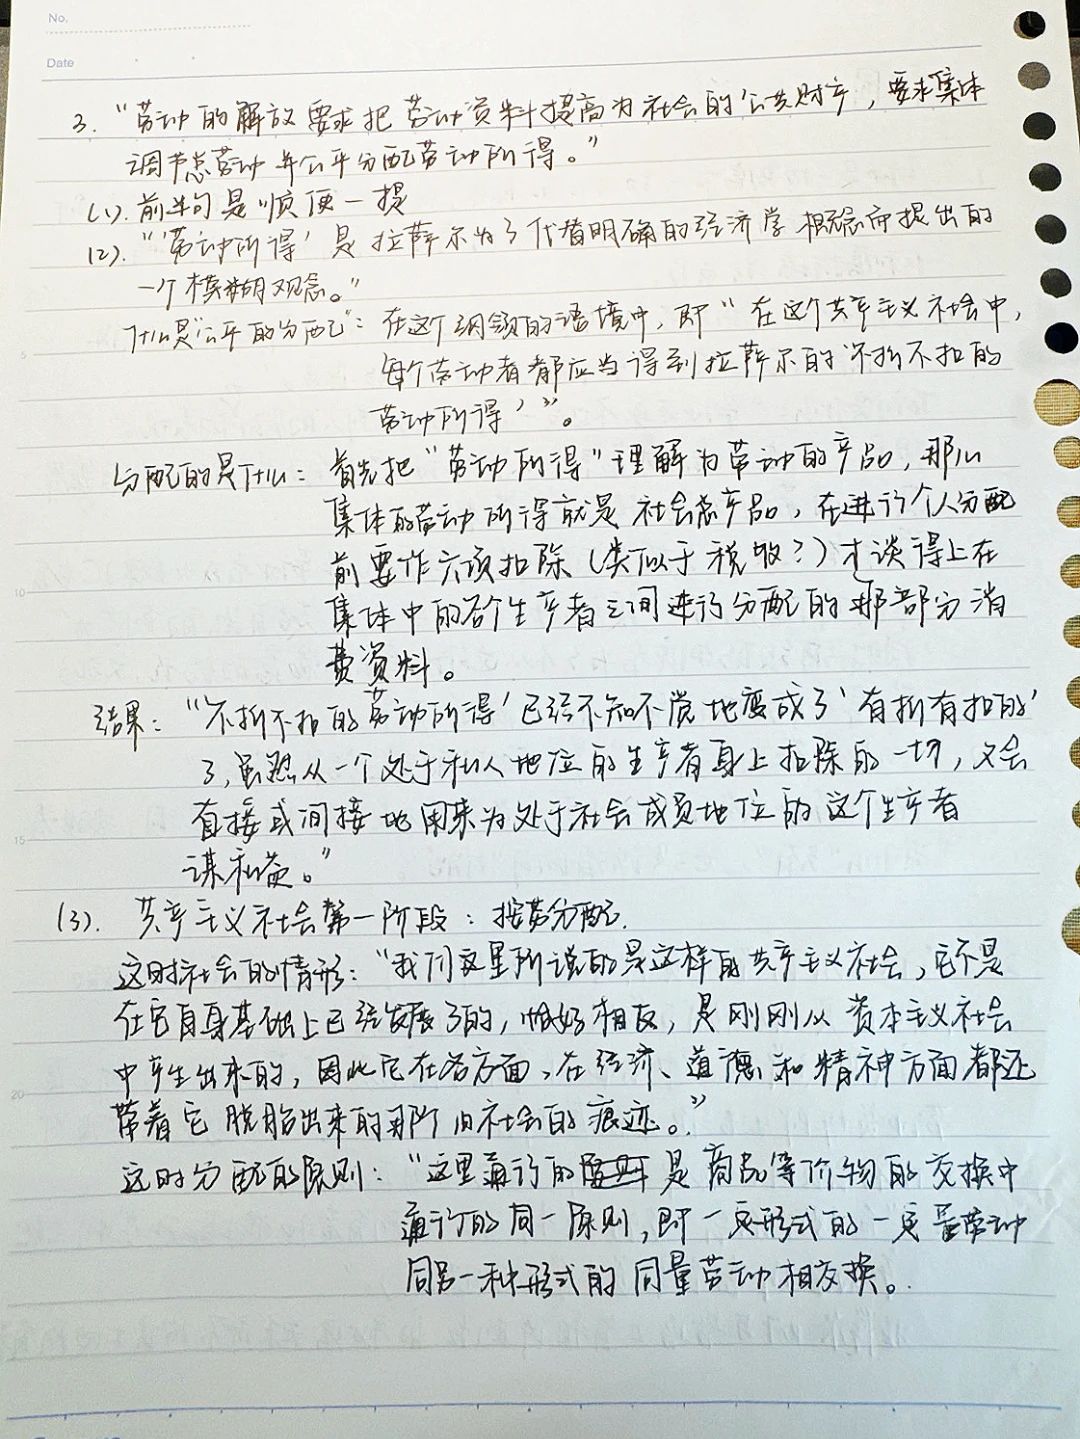 No.
Date
3. “劳动的解放要求把劳动资料提高为社会的公共财产，要求集体
调节总劳动并公平分配劳动所得。”
(1). 前半句是顺便一提
(2). “‘劳动所得’是拉萨尔为了代替明确的经济学概念而提出的
一个模糊观念。”
什么是“公平的分配”：在这个纲领的语境中，即“在这个共产主义社会中，
每个劳动者都应当得到拉萨尔的‘不折不扣的
劳动所得’”。
分配的是什么：首先把“劳动所得”理解为劳动的产品，那么
集体的劳动所得就是社会总产品，在进行个人分配
前要作六项扣除（类似于税收？）才谈得上在
集体中的各个生产者之间进行分配的那部分消
费资料。
结果：“‘不折不扣的劳动所得’已经不知不觉地变成了‘有折有扣的’
了，虽然从一个处于私人地位的生产者身上扣除的一切，又会
直接或间接地用来为处于社会成员地位的这个生产者
谋利益。”
(3). 共产主义社会第一阶段：按劳分配.
这时社会的情形：“我们这里所说的是这样的共产主义社会，它不是
在它自身基础上已经发展了的，恰好相反，是刚刚从资本主义社会
中产生出来的，因此它在各方面，在经济、道德和精神方面都还
带着它脱胎出来的那个旧社会的痕迹。”
这时分配的原则：“这里通行的是商品等价物的交换中
通行的同一原则，即一定形式的一定量劳动
同另一种形式的同量劳动相交换。
5
10
15
20